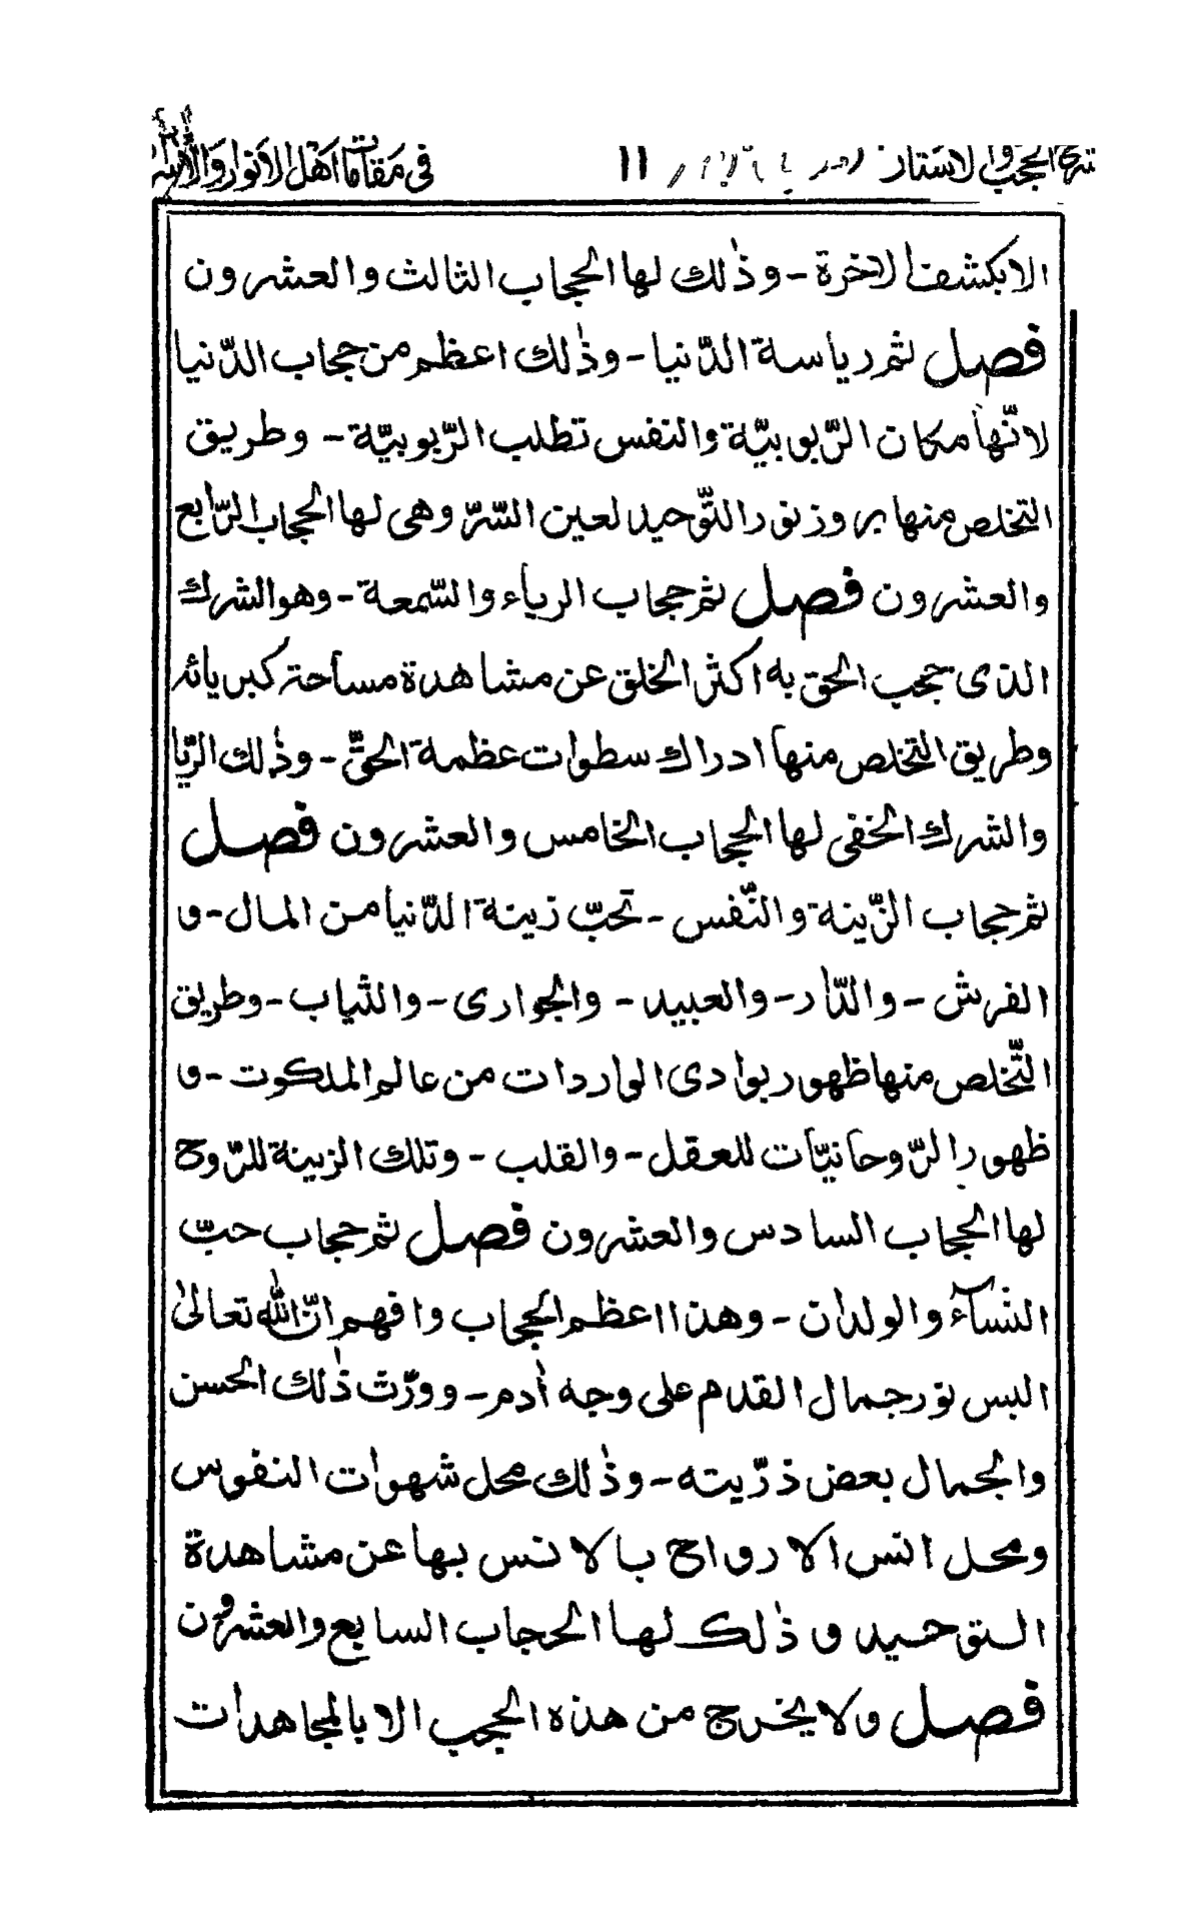 شرح الحجب والاستار ١١ فى مَقامَات اَهْل الاَنوار وَالاَسرار
الا بكشف الآخرة - وذٰلك لها الحجاب الثالث والعشرون
فصل ثم رياسة الدّنيا - وذٰلك اعظم من حجاب الدّنيا
لانّها مكان الرّبوبيّة والنفس تطلب الرّبوبيّة - وطريق
التخلص منها بروز نور التّوحيد لعين السّرّ وهى لها الحجاب الرّابع
والعشرون فصل ثم حجاب الرياء والسّمعة - وهو الشرك
الذى حجب الحق به اكثر الخلق عن مشاهدة مساحة كبريائه
وطريق التخلص منها ادراك سطوات عظمة الحقّ - وذٰلك الرّيا
والشرك الخفى لها الحجاب الخامس والعشرون فصل
ثم حجاب الزّينة والنّفس - تحبّ زينة الدّنيا من المال - و
الفرش - والدّار - والعبيد - والجوارى - والثياب - وطريق
التّخلص منها ظهور بوادى الواردات من عالم الملكوت - و
ظهور الرّوحانيّات للعقل - والقلب - وتلك الزينة للرّوح
لها الحجاب السادس والعشرون فصل ثم حجاب حبّ
النسآء والولدان - وهذا اعظم الحجاب وافهم انّ الله تعالىٰ
البس نور جمال القدم على وجه اٰدم - وورّث ذٰلك الحسن
والجمال بعض ذرّيته - وذٰلك محل شهوات النفوس
ومحل انس الارواح بالانس بها عن مشاهدة
التوحيد وذٰلك لها الحجاب السابع والعشرون
فصل ولا يخرج من هذه الحجب الا بالمجاهدات